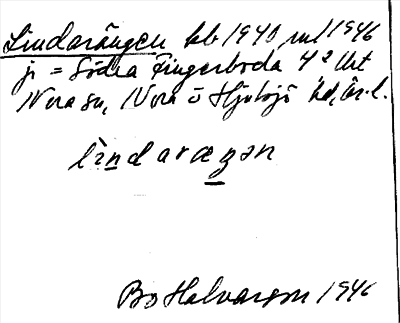 Lindarängen hb 1940 rul 1946
j = Södra Fingerboda 4² Utt
Nora sn, Nora o Hjulsjö hd, Ör. l.
lìndaraŋən
Bo Halvarson 1946